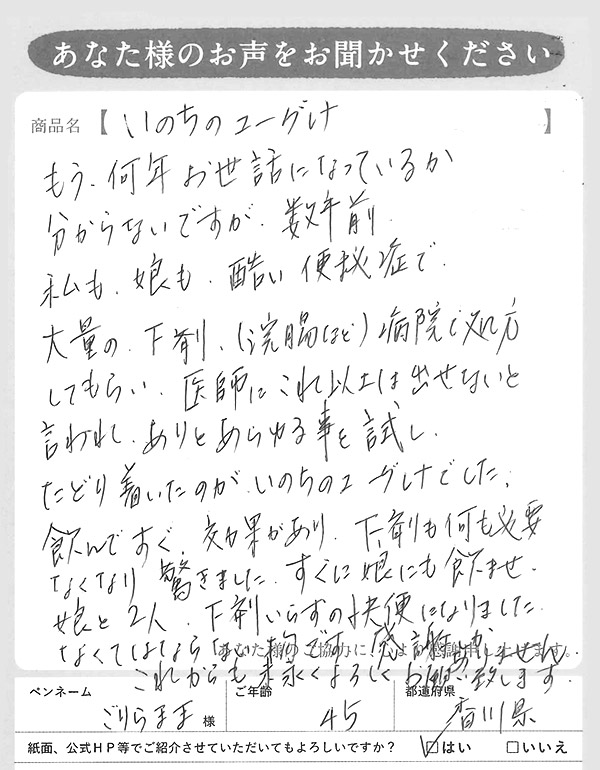 あなた様のお声をお聞かせください
商品名【いのちのユーグレナ】
もう、何年お世話になっているか
分からないですが、数年前、
私も、娘も、酷い便秘症で、
大量の、下剤、(浣腸など)病院で処方
してもらい、医師にこれ以上は出せないと
言われ、ありとあらゆる事を試し、
たどり着いたのが、いのちのユーグレナでした。
飲んですぐ、効果があり、下剤も何も必要
なくなり驚きました。すぐに娘にも飲ませ、
娘と2人、下剤いらずの快便になりました。
なくてはならない物です。感謝しかありません。
あなた様のご協力に、心より感謝申し上げます。
これからも末永くよろしくお願い致します。
ペンネーム ご年齢 都道府県
ごりらまま 様 45 香川県
紙面、公式HP等でご紹介させていただいてもよろしいですか？ ☑はい □いいえ